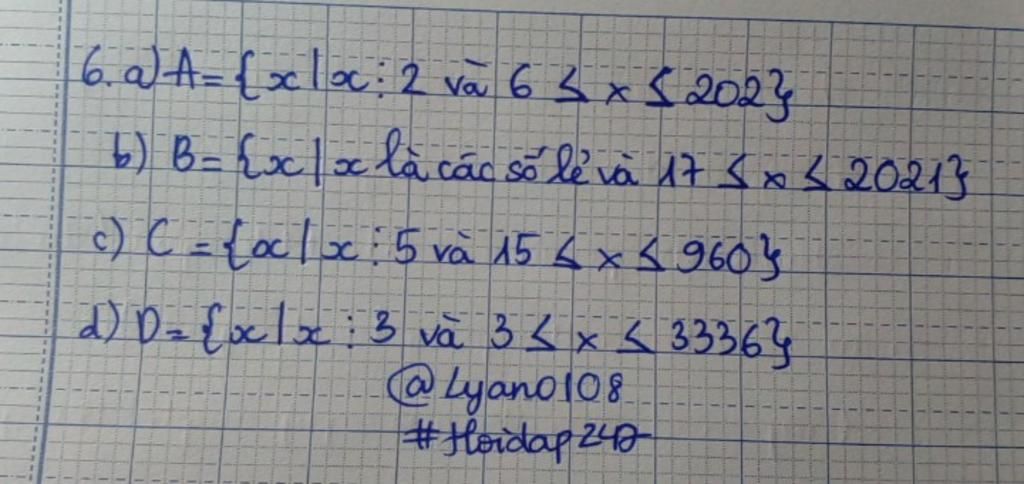 6. a) A = {x | x ⋮ 2 và 6 ≤ x ≤ 202}
b) B = {x | x là các số lẻ và 17 ≤ x ≤ 2021}
c) C = {x | x ⋮ 5 và 15 ≤ x ≤ 960}
d) D = {x | x ⋮ 3 và 3 ≤ x ≤ 3336}
@Lyan0108
#Hoidap247